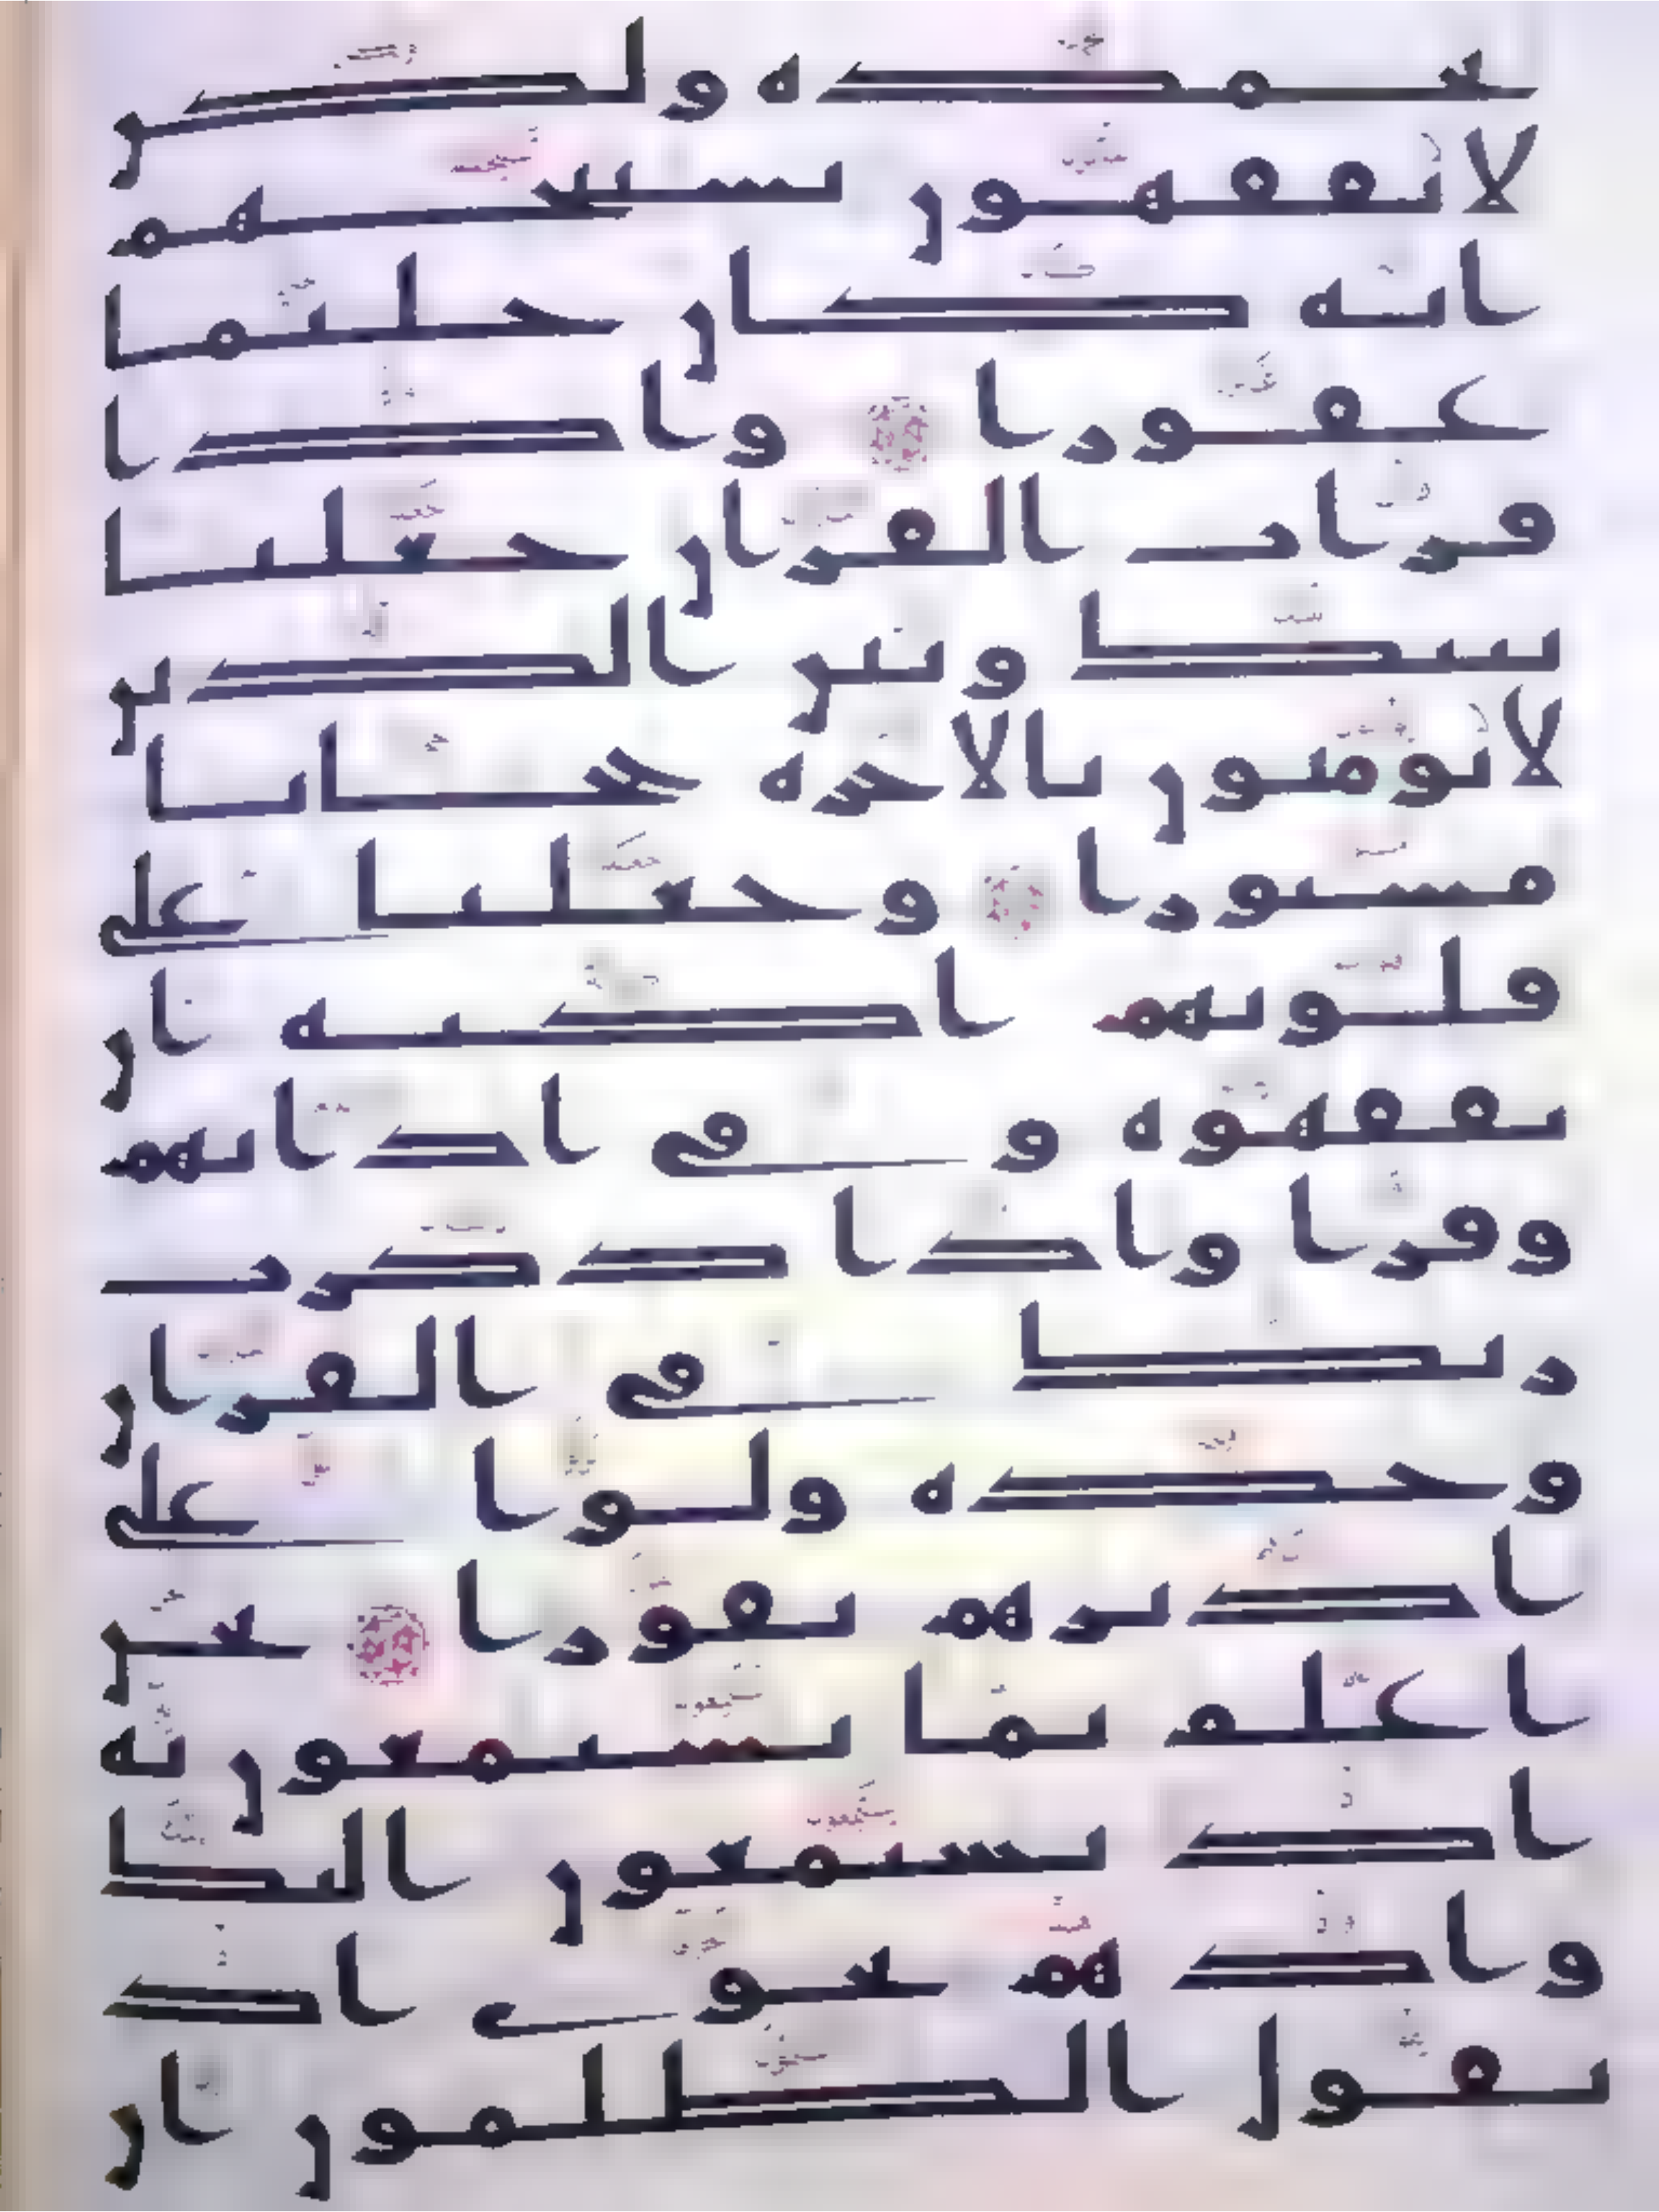 بحمده ولكن
لا تفقهون تسبيحهم
انه كان حليما
غفورا واذا
قرات القران جعلنا
بينك وبين الذين
لا يومنون بالاخره حجابا
مستورا وجعلنا على
قلوبهم اكنه ان
يفقهوه وفي اذانهم
وقرا واذا ذكرت
ربك في القران
وحده ولوا على
ادبرهم نفورا نحن
اعلم بما يستمعون به
اذ يستمعون اليك
واذ هم نجوى اذ
يقول الظلمون ان